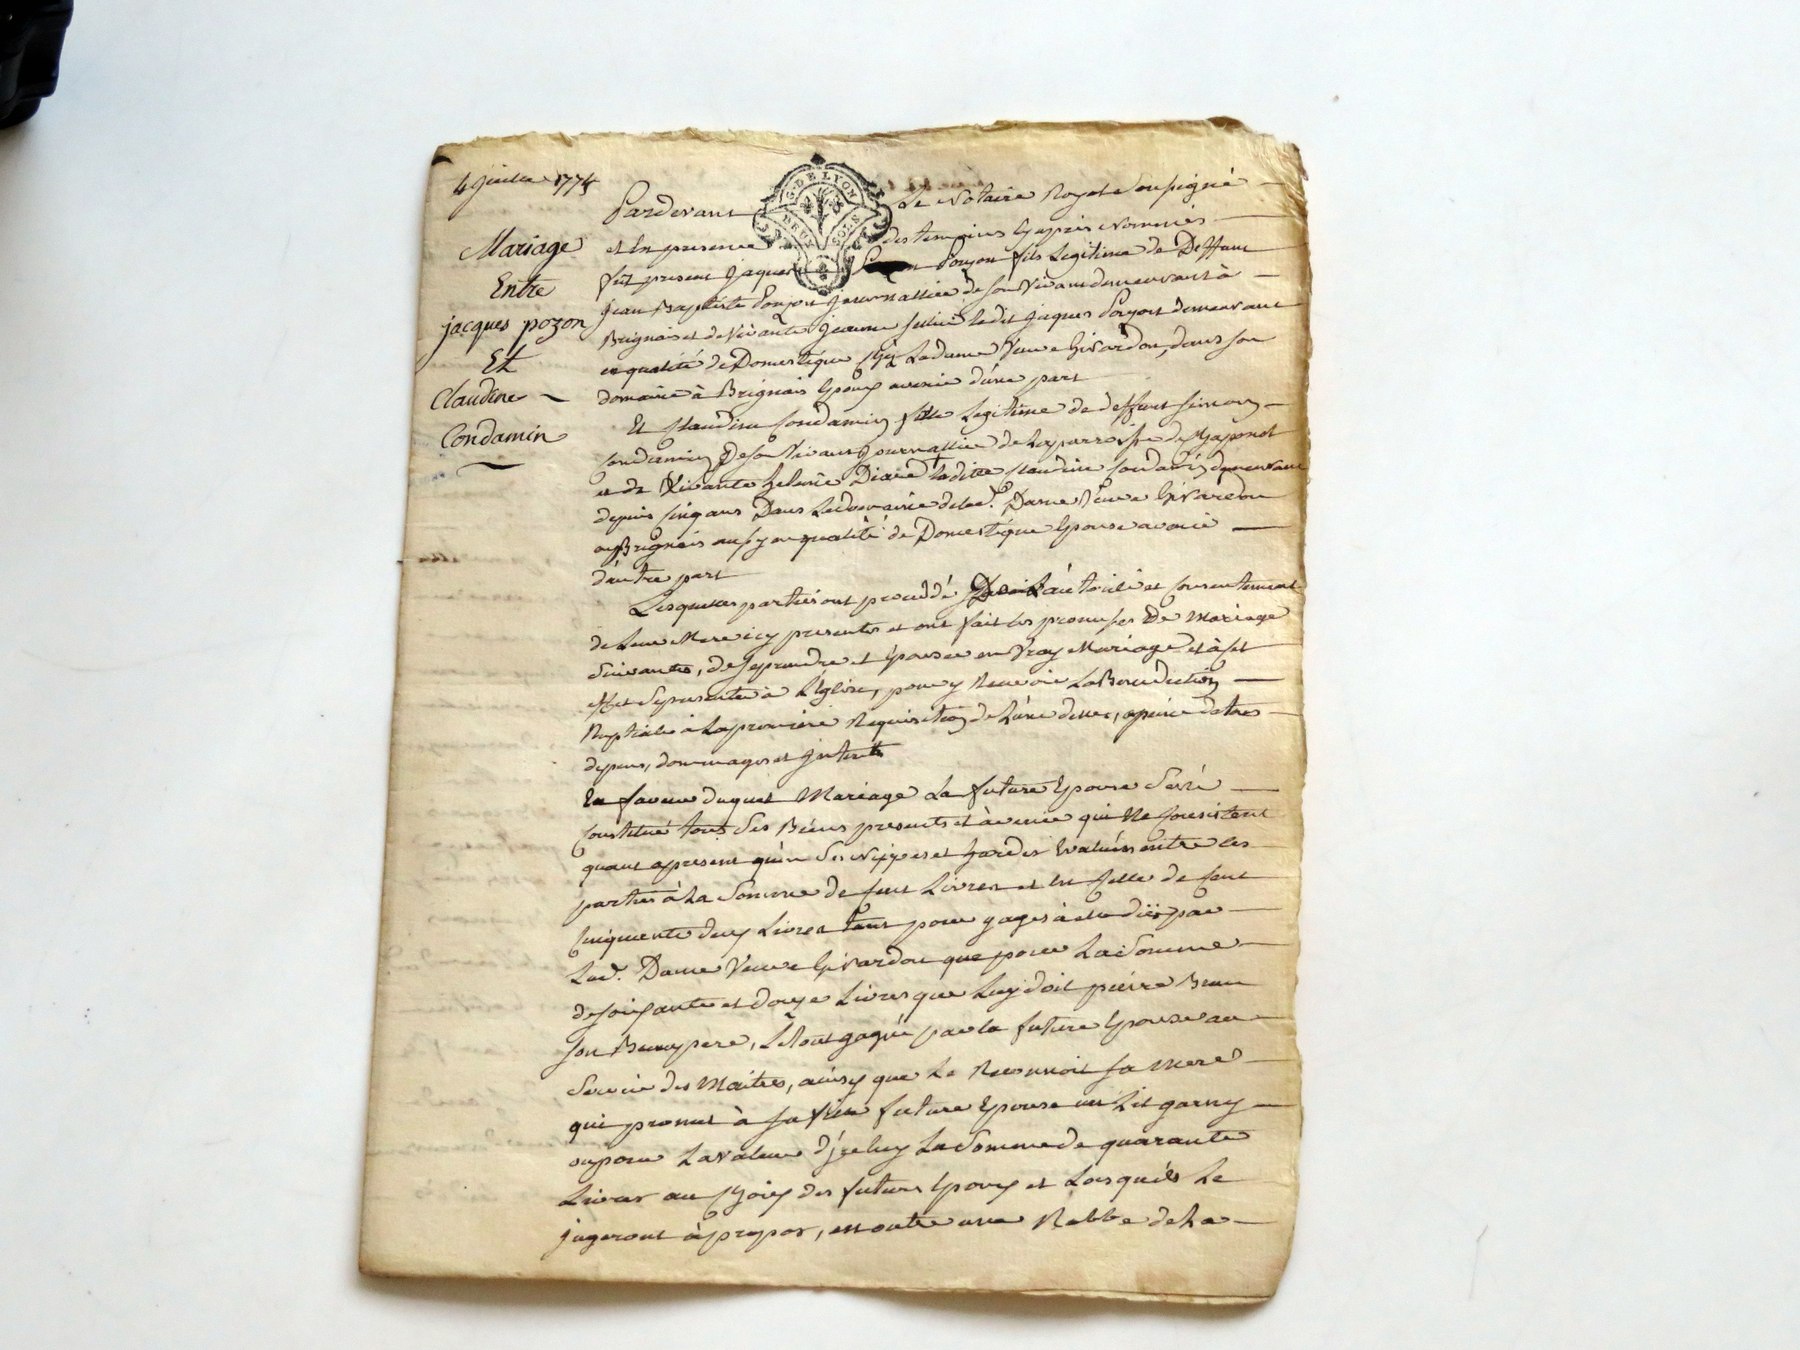 4 Juillet 1774
Mariage
Entre
jacques pozon
Et
Claudine
Condamin
G. DE LYON
DEUX SOLS
Pardevant Le Notaire Royal Soussigné
et En presence des temoins Cyaprès Nommés
fut present Jaques Ponjon fils Legitime de Deffunt
Jean Baptiste Ponjon Journallier de son Vivant demeurant à
Brignais et de Vivante Jeanne ledit Jaques Ponjon demeurant
en qualité de Domestique chez La dame Veuve Givardon, dans son
domaine à Brignais Epoux avenir d'une part
Et Claudine Condamin fille Legitime de deffunt Simon
Condamin De son Vivant Journallier de La parroisse de Chaponost
et de Vivante Helenie laditte Claudine Condamin demeurant
depuis cinq ans Dans Le domaine de lad. Dame Veuve Givardon
à Brignais aussy en qualité de Domestique Epouse avenir
d'autre part
Lesquelles parties ont procedé De L'autorité et Consentement
de Leur Mere icy presentes et ont fait les promesses De Mariage
Suivantes, de se prendre et Epouser en Vray Mariage et à cet
effet Se presenter à L'Eglise, pour y Recevoir La Benediction
Nuptiale à La premiere Requisition de L'une delles, apeine de tous
depens, dommages et Interets
En faveur duquel Mariage La future Epouse Sest
Constitué tous Ses Biens presents et àvenir qui Ne Consistent
quant apresent qu'en Ses Nippes et hardes Evalués entre les
parties à La Somme de Cent Livres et En Celle de Cent
Cinquante deux Livres tant pour gages à elle dûs par
Lad. Dame Veuve Givardon que pour La Somme
de soixante et douze Livres que Luy doit pierre Brun
son Beaupere, Le tout gagné par la future Epouse au
Service des Maitres, ainsy que Le Reconnoit sa Mere
qui promet à sa fille future Epouse un Lit garny
ou pour La valeur d'jceluy La Somme de quarante
Livres au Choix des futurs Epoux et Lorsqu'ils Le
jugeront àpropos, en outre une Robbe de La